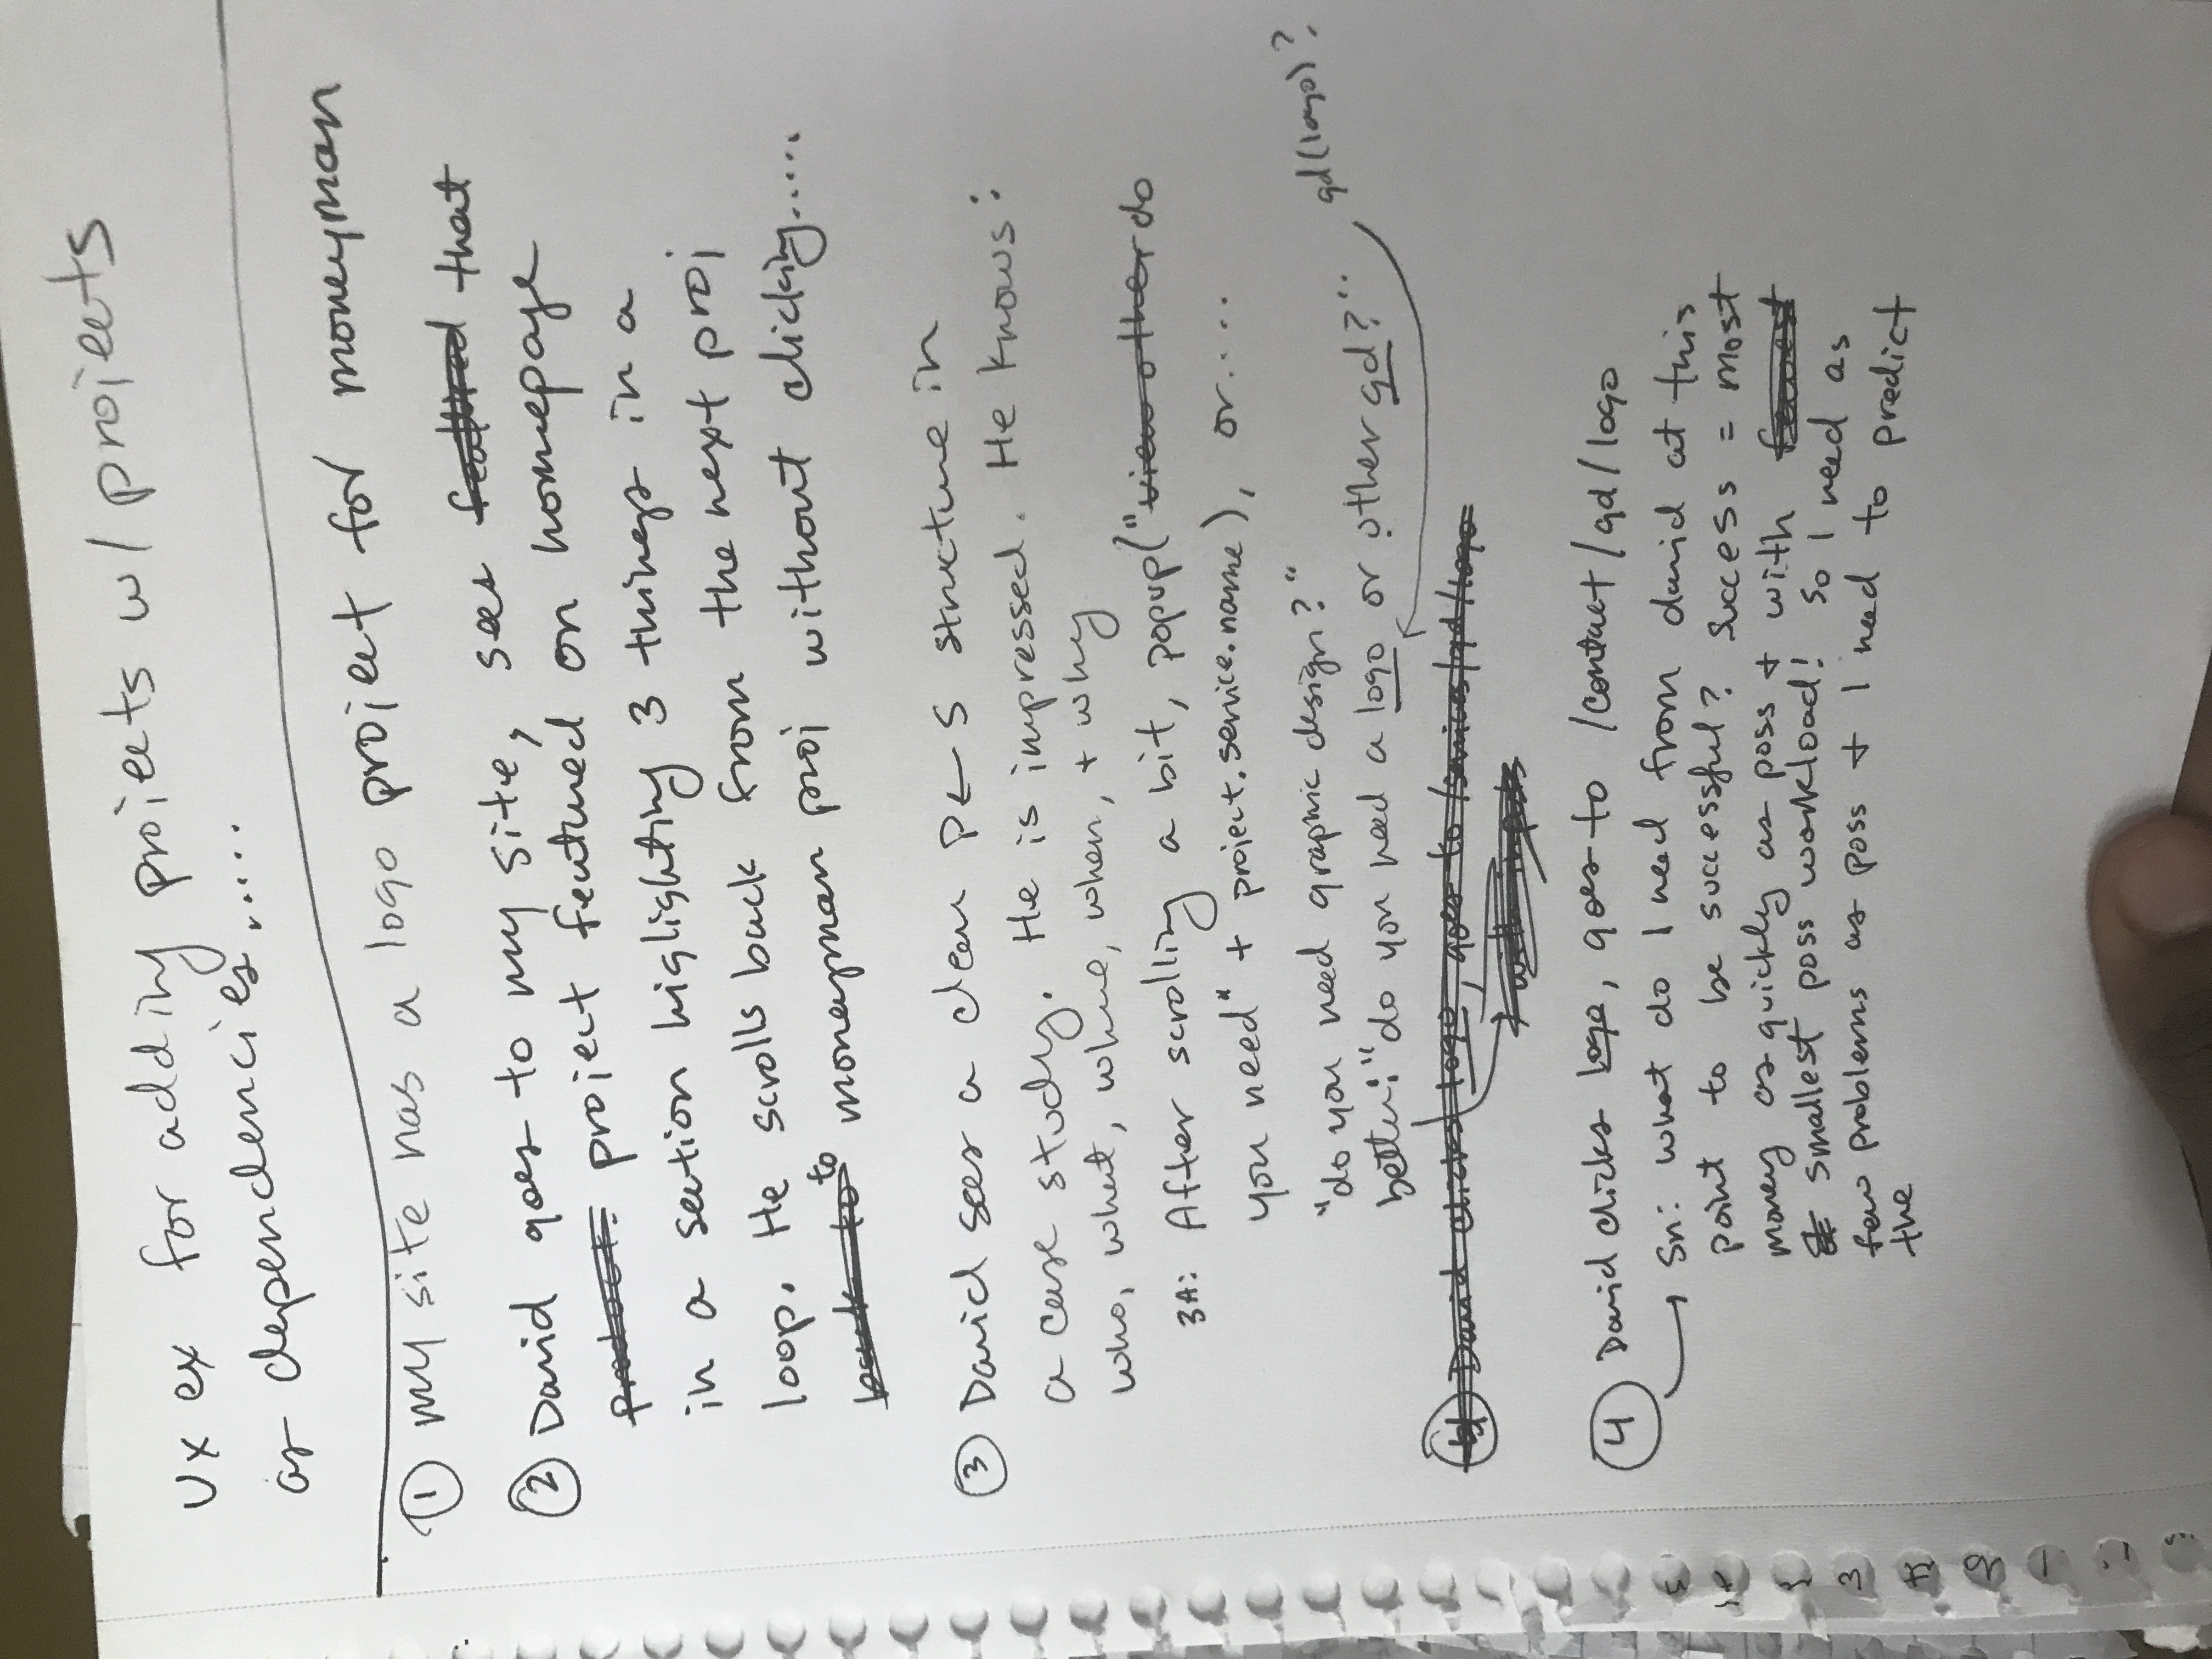 Ux ex for adding projects w/ projects
as dependencies.....
① my site has a logo project for moneyman
② David goes to my site, sees featured that
product. project featured on homepage
in a section higlighting 3 things in a
loop. He scrolls back from the next proj
back to to moneyman proj without clicking.....
③ David sees a clean P← S structure in
a case study. He is impressed. He knows:
who, what, where, when, + why
3A: After scrolling a bit, popup("view other do
you need" + project.service.name), or....
"do you need graphic design?"
gd(logo)?
better: "do you need a logo or other gd?"
④ David clicks logo, goes to /services/gd/logo
with inputs
④ David clicks logo, goes to /contact/gd/logo
→ Sn: what do I need from david at this
point to be successful? Success = most
money as quickly as poss + with fewest
smallest poss workload! So I need as
few problems as poss + I need to predict
the